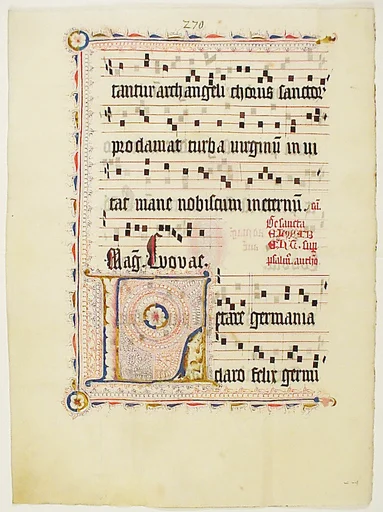 270
tantur archangeli chorus sanctor
proclamat turba virginū in vi
tat mane nobiscum ineternū.
Mag. Evovae.
De sancta
psalm̄. antipħ
Letare germania
claro felix germi